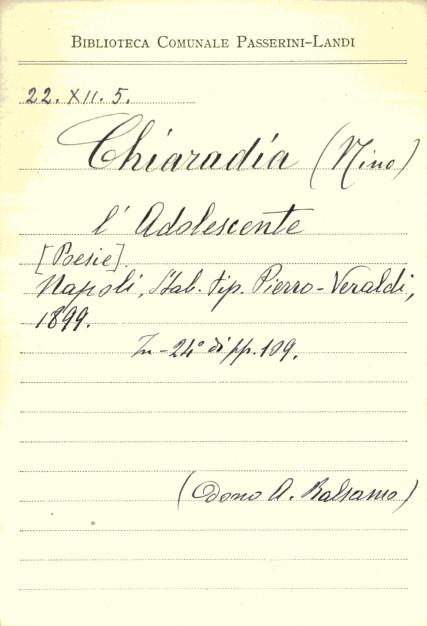 BIBLIOTECA COMUNALE PASSERINI-LANDI
22. XII. 5.
Chiaradia (Nino)
l'Adolescente
[Poesie].
Napoli, Stab. tip. Pierro-Veraldi,
1899.
In-24° di pp. 109.
(Dono A. Balsamo)